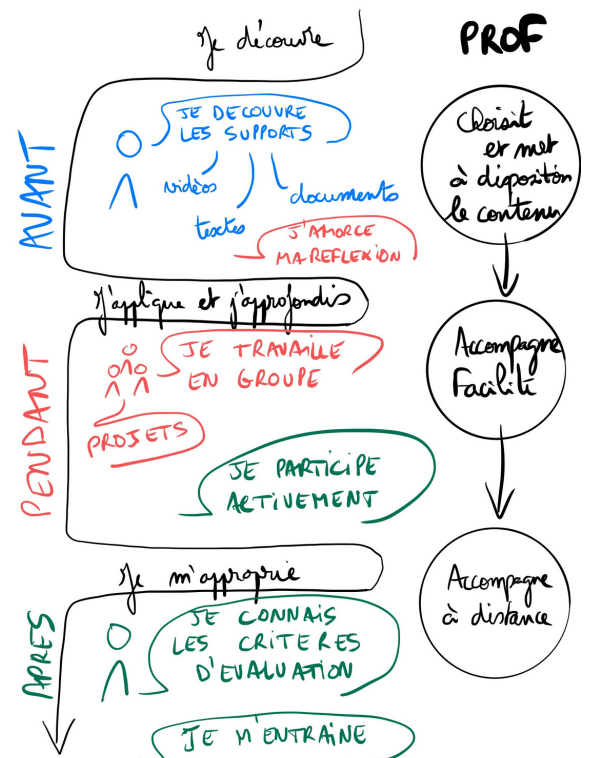 Je découvre
PROF
AVANT
JE DECOUVRE
LES SUPPORTS
vidèos
textes
documents
J'AMORCE
MA REFLEXION
Choisit
et met
à dispositon
le contenu
J'applique et j'approfondis
PENDANT
JE TRAVAILLE
EN GROUPE
PROJETS
JE PARTICIPE
ACTIVEMENT
Accompagne
Facilite
Je m'approprie
APRES
JE CONNAIS
LES CRITERES
D'EVALUATION
JE M'ENTRAÎNE
Accompagne
à distance